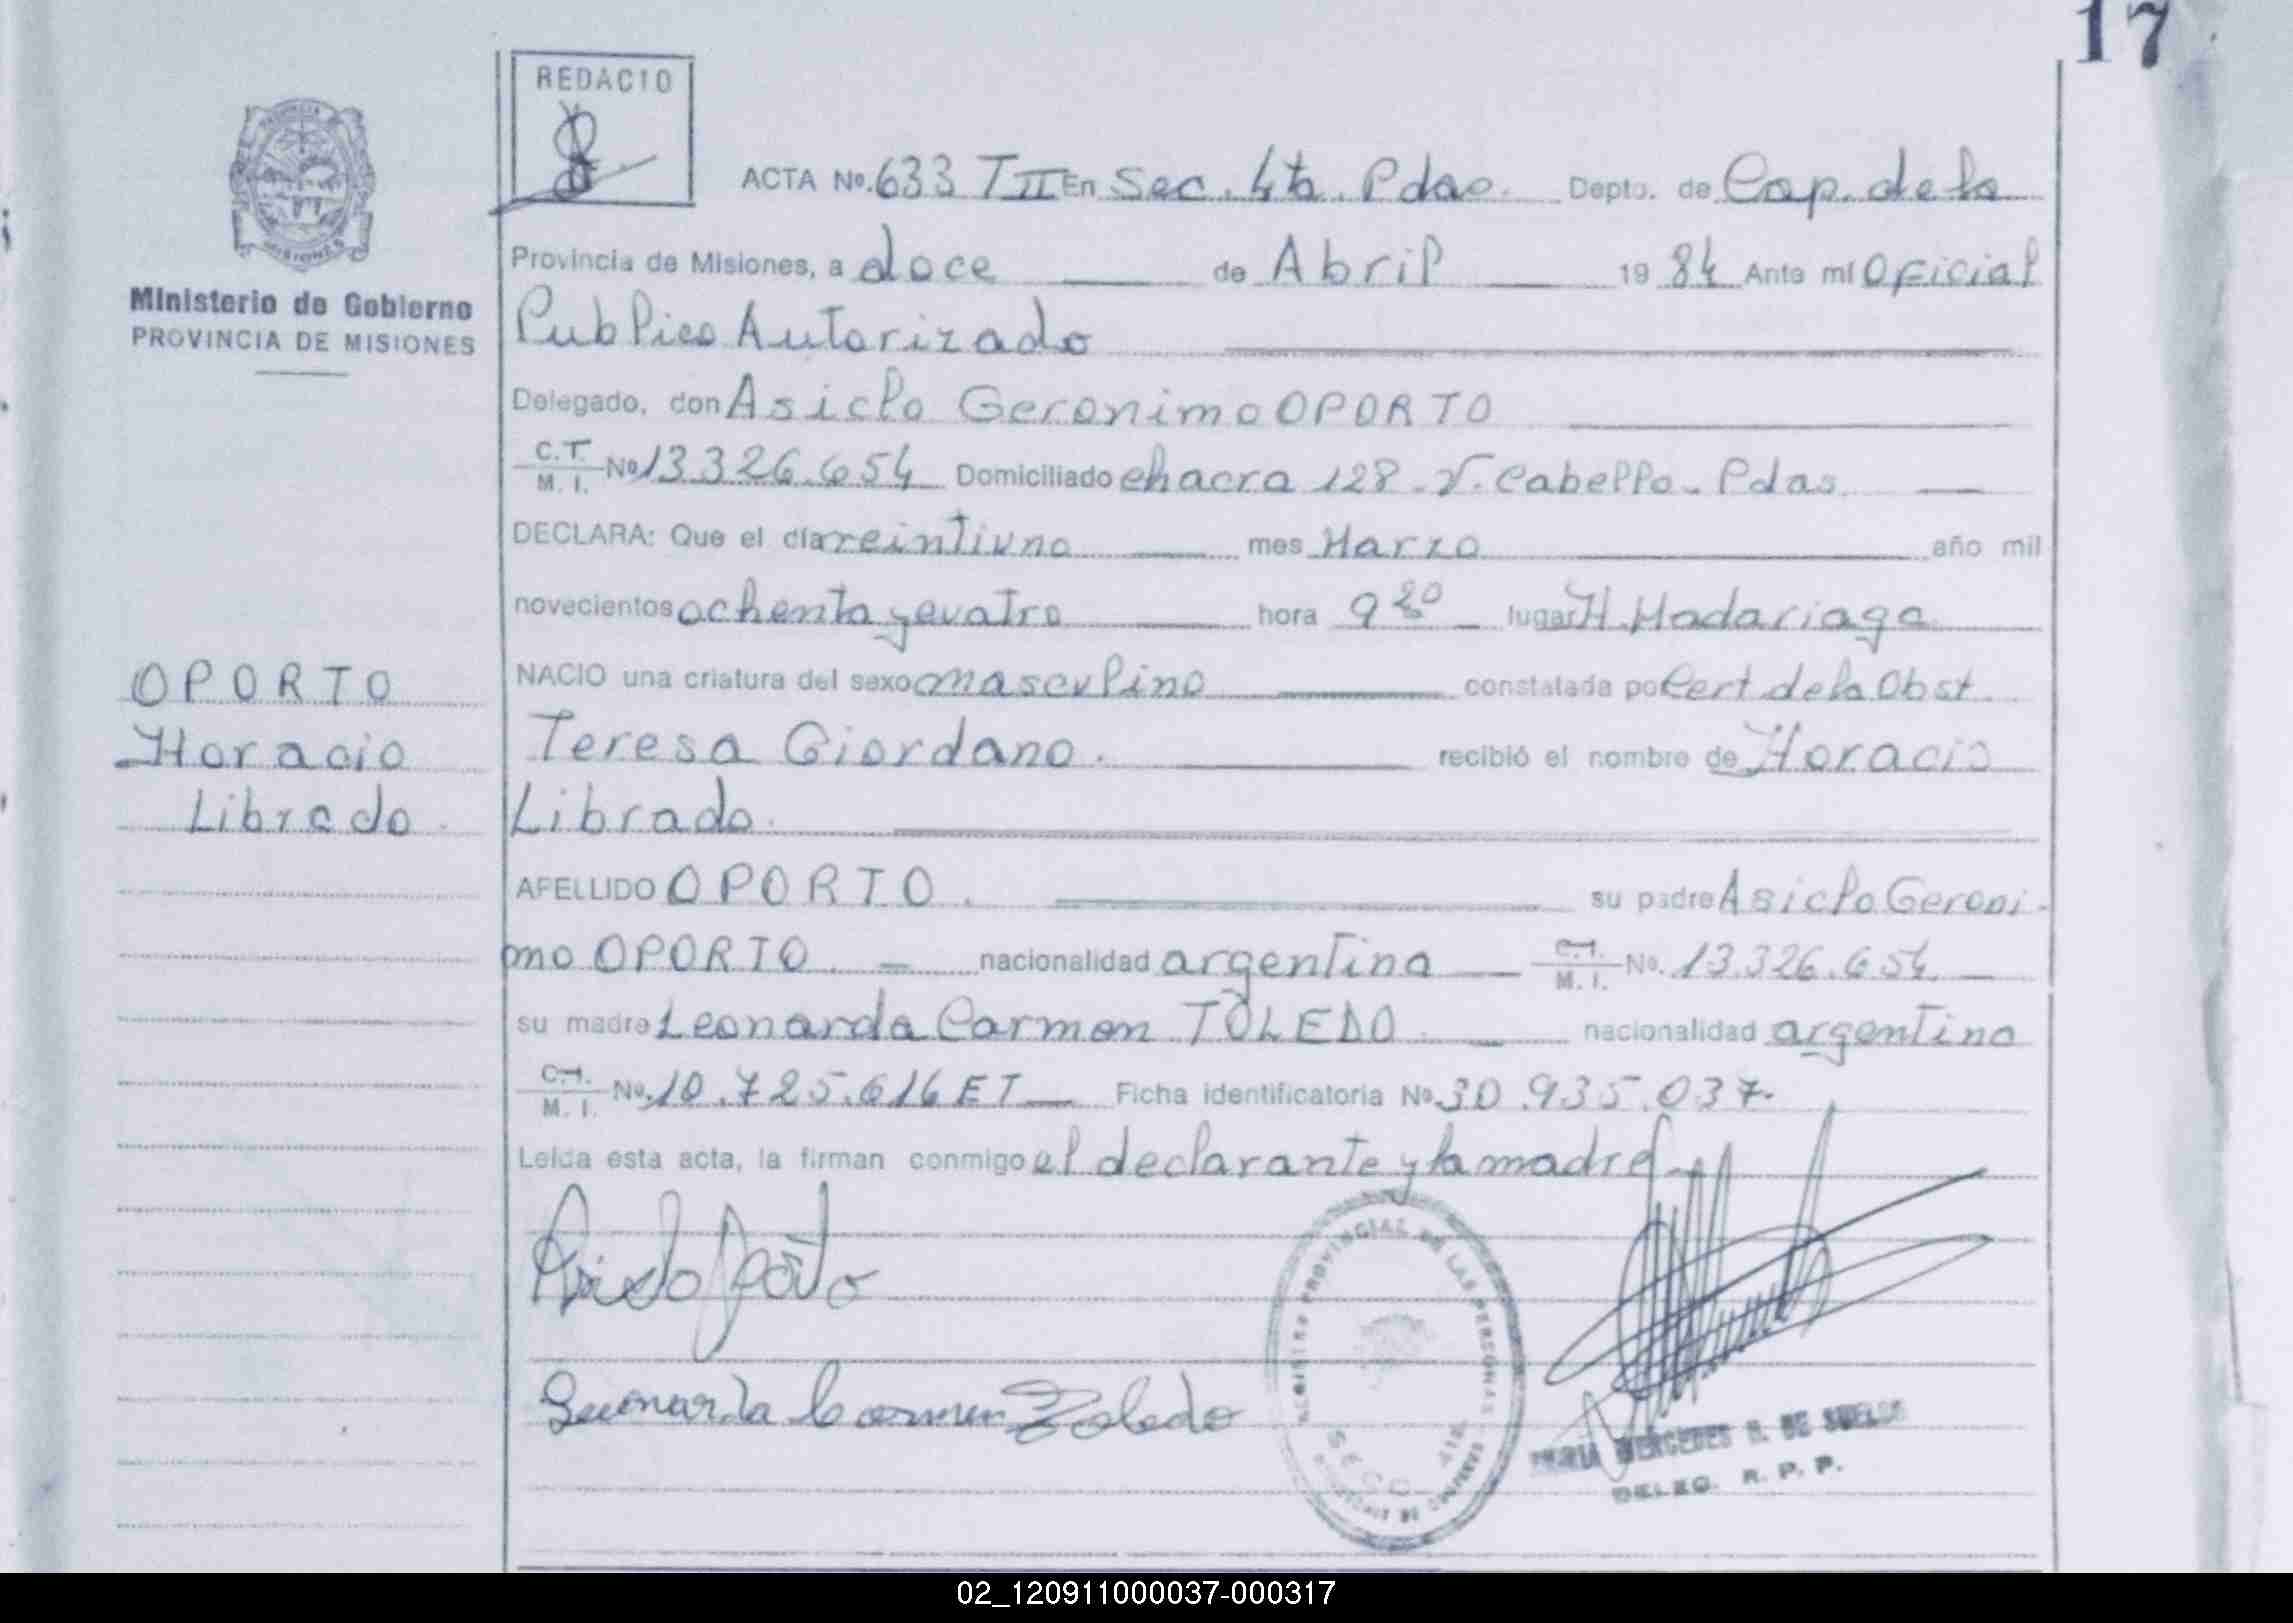 17
REDACTO
ACTA No. 633 T II En Sec. 4ta. Pdas. Depto. de Cap. de la
Provincia de Misiones, a doce de Abril 1984 Ante mí Oficial
Publico Autorizado
Delegado, don Asiclo Geronimo OPORTO
C.T. M. I. No 13.326.654 Domiciliado chacra 128 - V. Cabello - Pdas.
DECLARA: Que el día veintiuno mes Marzo año mil
novecientos ochenta y cuatro hora 9 20 lugar H. Madariaga
NACIO una criatura del sexo masculino constatada por Cert de la Obst.
Teresa Giordano. recibió el nombre de Horacio
Librado.
APELLIDO OPORTO. su padre Asiclo Geroni-
mo OPORTO. nacionalidad argentina C.I. M. I. No. 13.326.654
su madre Leonarda Carmen TOLEDO. nacionalidad argentina
C.I. M. I. No. 10.725.616 ET Ficha identificatoria No. 30.935.037.
Leída esta acta, la firman conmigo el declarante y la madre
Leonarda Carmen Toledo
PROVINCIA
MISIONES
Ministerio de Gobierno
PROVINCIA DE MISIONES
OPORTO
Horacio
Librado.
PROVINCIAL DE LAS PERSONAS
MARIA MERCEDES DE
DELEG. R. P. P.
02_120911000037-000317